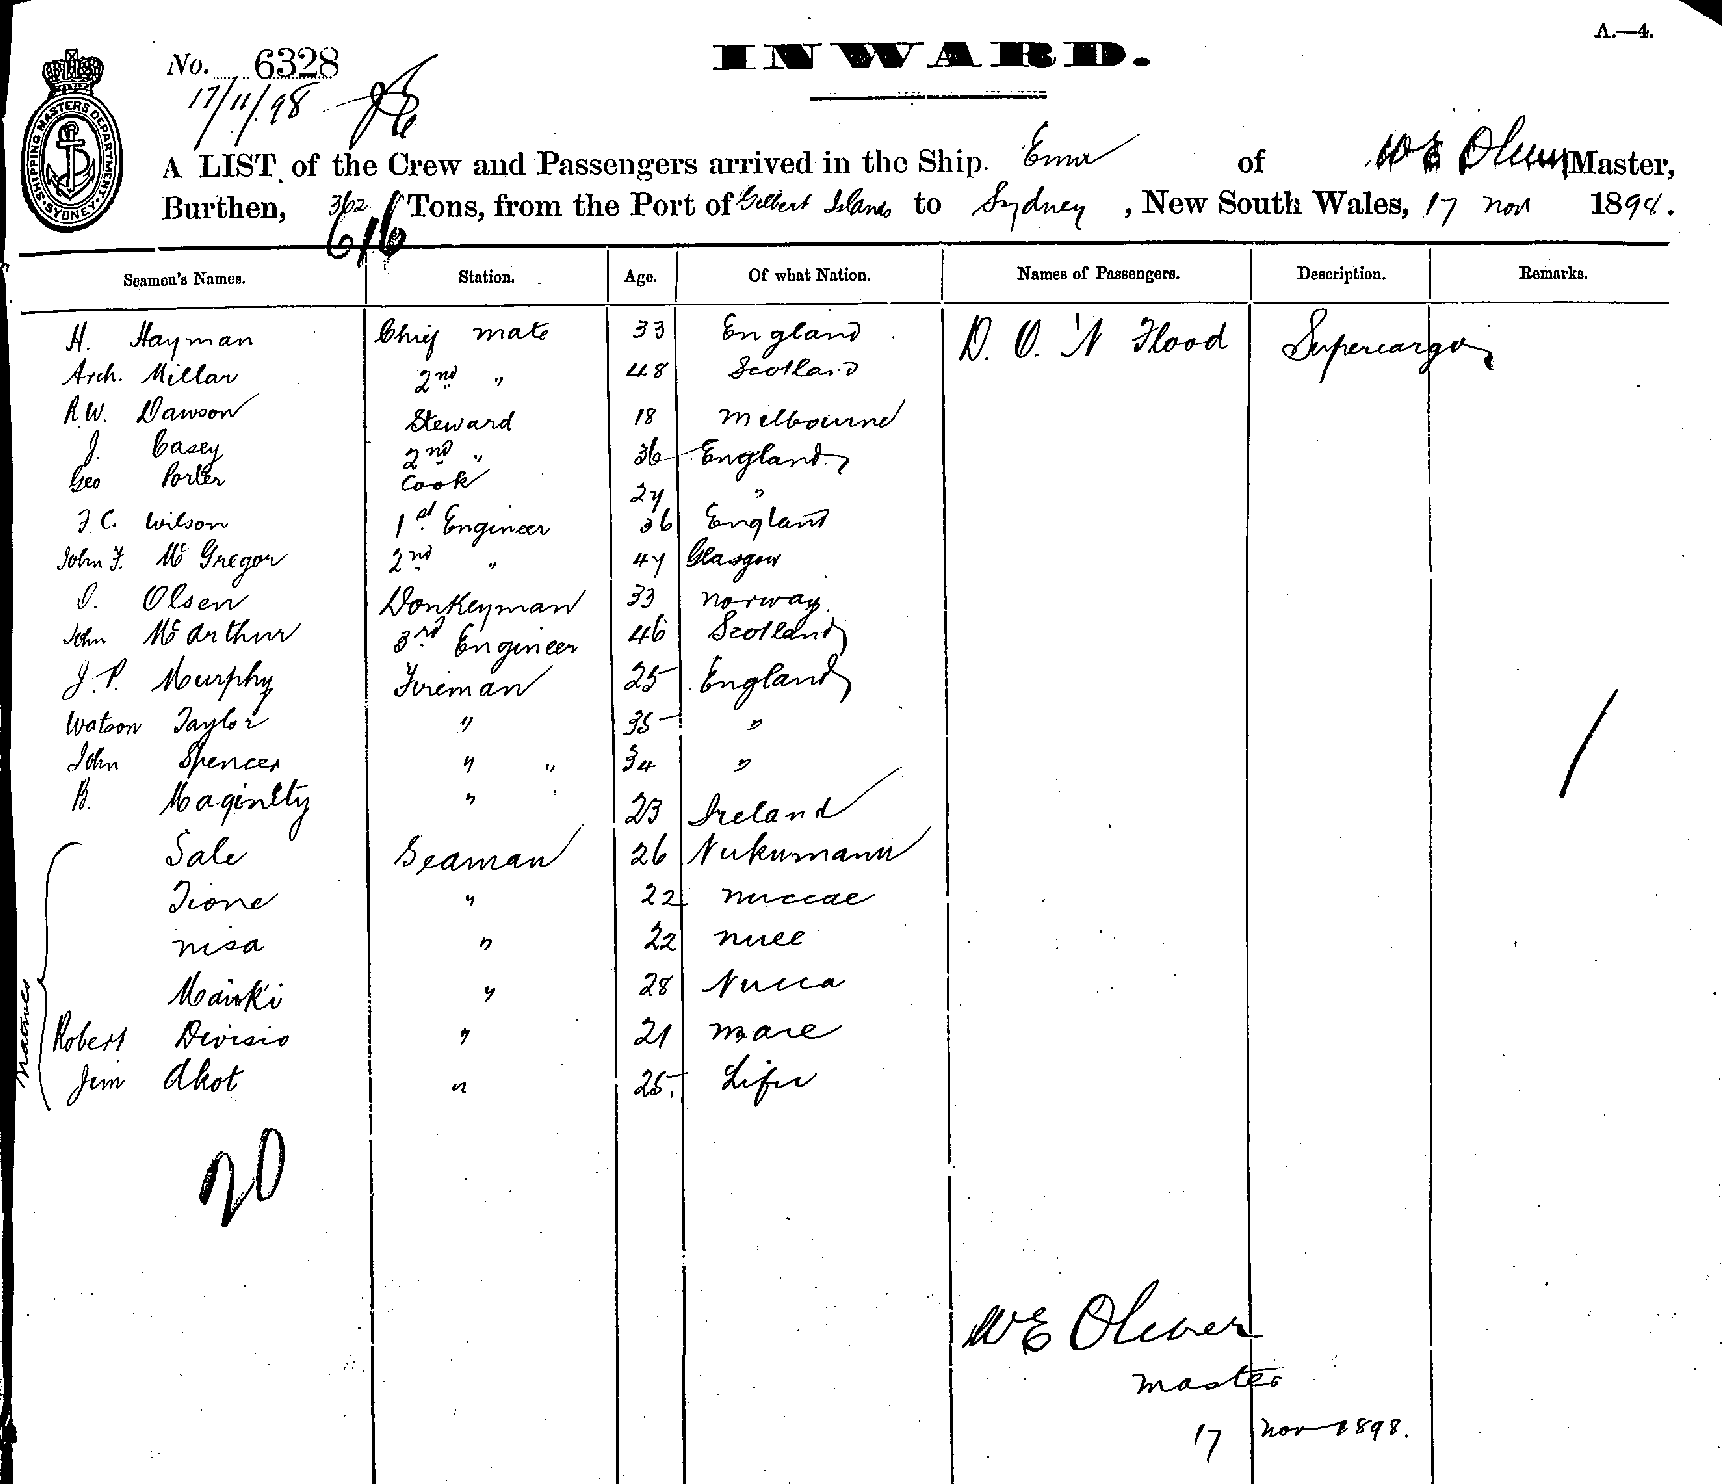 A.—4.
INWARD.
No. 6328
17/11/98
SHIPPING MASTERS DEPARTMENT SYDNEY
A LIST of the Crew and Passengers arrived in the Ship. of W E Oliver Master,
Burthen, 362 Tons, from the Port of Gilbert Islands to Sydney, New South Wales, 17 Nov 1898.
616
Seamen's Names. Station. Age. Of what Nation. Names of Passengers. Description. Remarks.
H. Hayman Chief mate 33 England D. O. 'N Flood Supercargo
Arch. Millar 2nd " 48 Scotland
R.W. Dawson Steward 18 Melbourne
J. Casey 2nd " 36 England
Geo Porter Cook 27 "
J C. Wilson 1st Engineer 36 England
John F. Mc Gregor 2nd " 47 Glasgow
O. Olsen Donkeyman 33 Norway.
John McArthur 3rd Engineer 46 Scotland
J. P. Murphy Fireman 25 England
Watson Taylor " 35 "
John Spencer " " 34 "
B. Maginlty " 23 Ireland
Natives
Sale Seaman 26 Nukumanu
Tione " 22
nisa " 22
" 28
Robert " 21 mare
Jim Akot " 25. Lifu
20
W E Oliver
Master
17 Nov 1898.